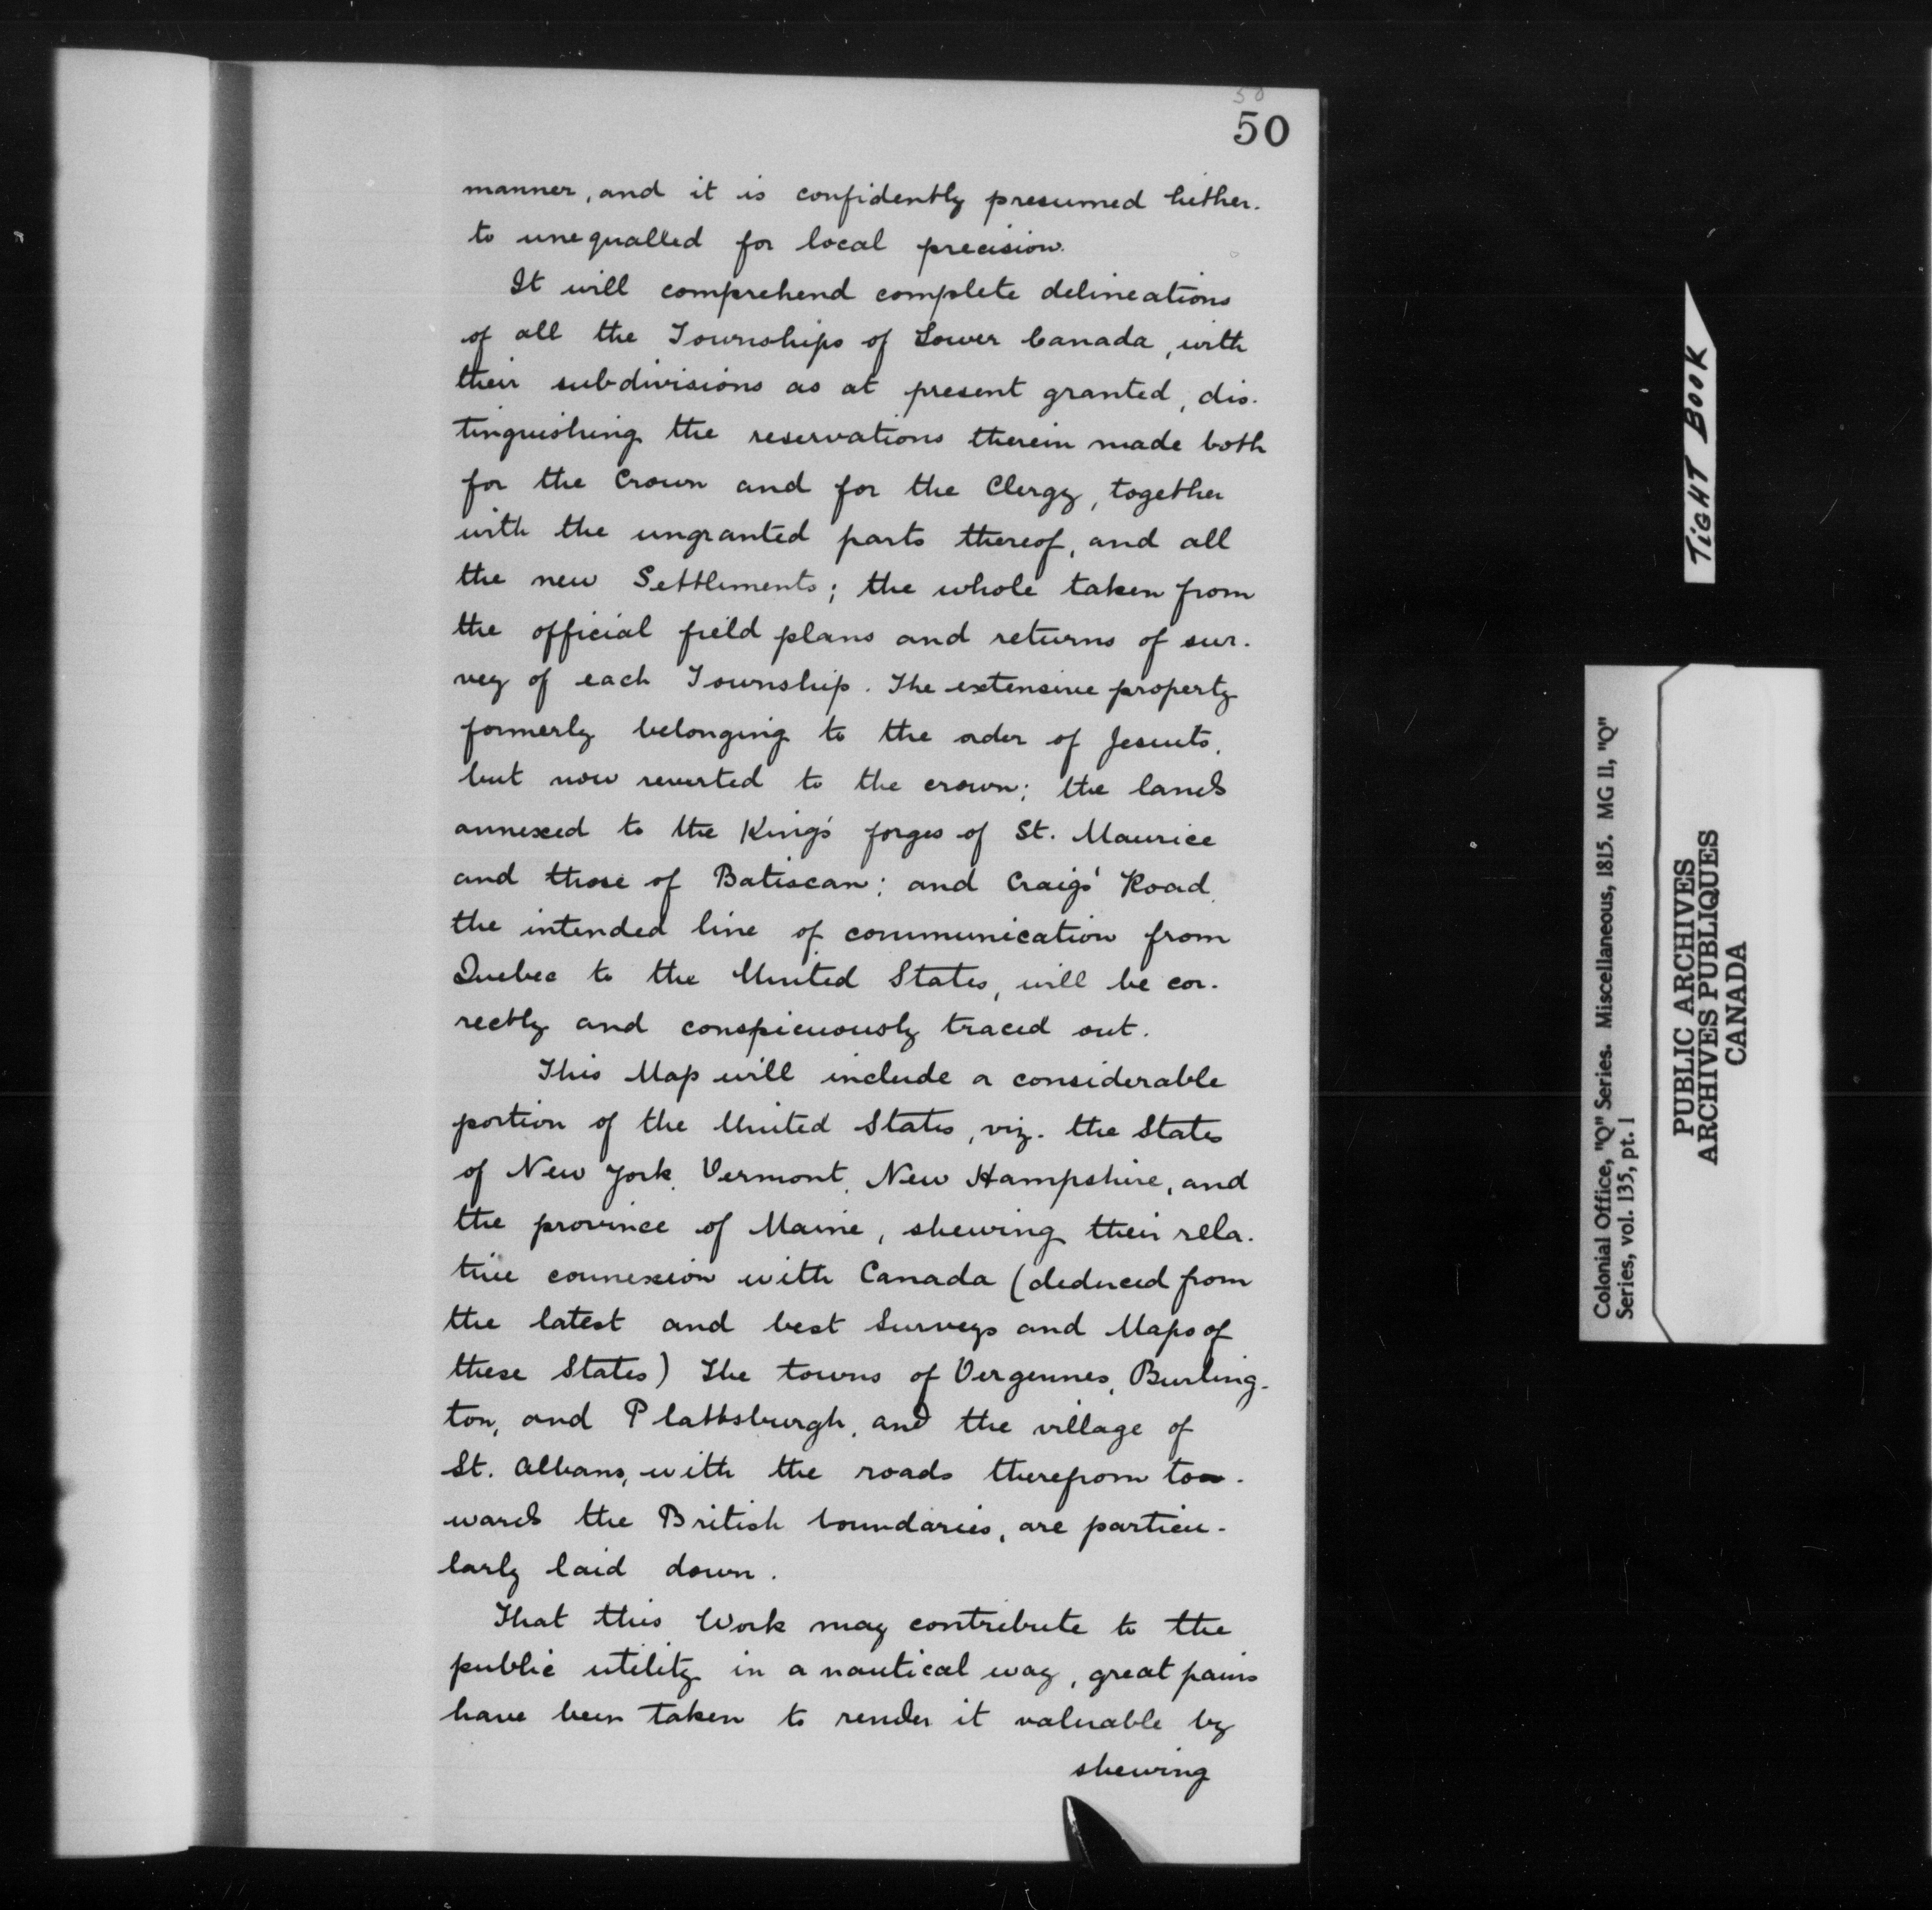 50
50
manner, and it is confidently presumed hither-
to unequalled for local precision.
It will comprehend complete delineations
of all the Townships of Lower Canada, with
their subdivisions as at present granted, dis-
tinguishing the reservations therein made both
for the Crown and for the Clergy, together
with the ungranted parts thereof, and all
the new Settlements; the whole taken from
the official field plans and returns of sur-
vey of each Township. The extensive property
formerly belonging to the order of Jesuits,
but now reverted to the crown; the lands
annexed to the King's forges of St. Maurice
and those of Batiscan; and Craigs' Road,
the intended line of communication from
Quebec to the United States, will be cor-
rectly and conspicuously traced out.
This Map will include a considerable
portion of the United States, viz. the States
of New York, Vermont, New Hampshire, and
the province of Maine, shewing their rela-
tive connexion with Canada (deduced from
the latest and best Surveys and Maps of
these States) The towns of Vergennes, Burling-
ton, and Plattsburgh, and the village of
St. Albans, with the roads therefrom to-
wards the British boundaries, are particu-
larly laid down.
That this Work may contribute to the
public utility in a nautical way, great pains
have been taken to render it valuable by
shewing
TIGHT BOOK
Colonial Office, "Q" Series. Miscellaneous, 1815. MG 11, "Q"
Series, vol. 135, pt. 1
PUBLIC ARCHIVES
ARCHIVES PUBLIQUES
CANADA